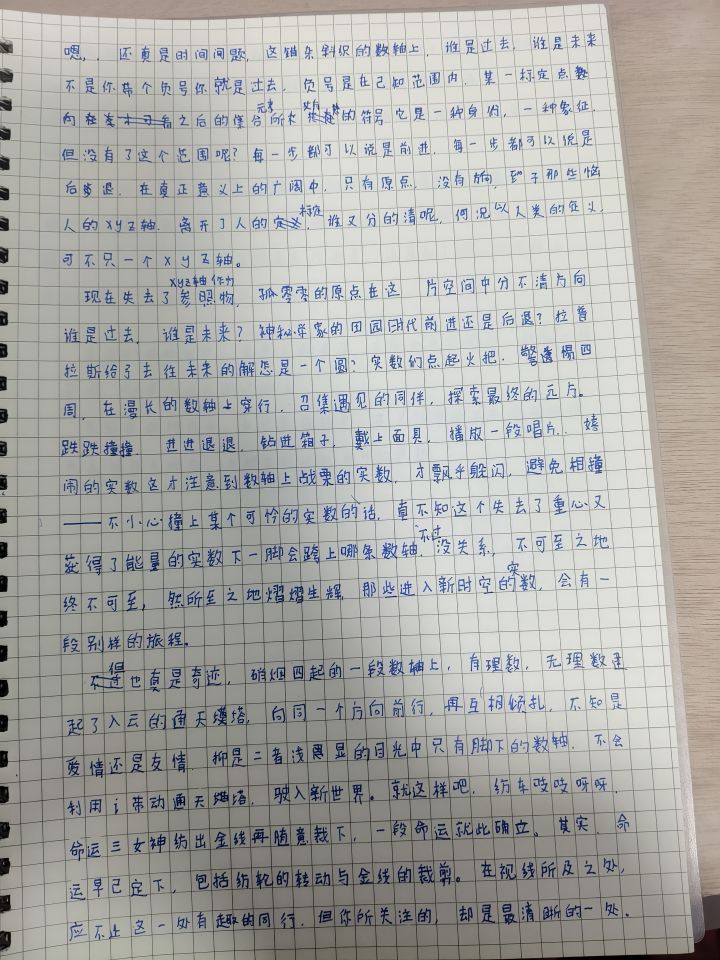 嗯,. 还真是时间问题, 这错杂斜织的数轴上, 谁是过去, 谁是未来
不是你带个负号你就是过去, 负号是在已知范围内, 某一标定点
向 之后的集合所 元素 共有的符号 它是一种身份, 一种象征.
但没有了这个范围呢? 每一步都可以说是前进, 每一步都可以说是
后退, 在真正意义上的广阔中, 只有原点, 没有方向, 至于那些恼
人的xyz轴. 离开了人的标定, 谁又分的清呢, 何况以人类的定义,
可不只一个xyz轴。
现在失去了xyz轴作为参照物, 孤零零的原点在这 片空间中分不清方向
谁是过去, 谁是未来? 神秘学家的田园时代前进还是后退? 拉普
拉斯给了去往未来的解怎是一个圆? 实数们点起火把, 警惕四
周, 在漫长的数轴上穿行, 召集遇见的同伴, 探索最终的元片。
跌跌撞撞, 进进退退, 钻进箱子, 戴上面具, 播放一段唱片. 嬉
闹的实数这才注意到数轴上战栗的实数, 才飘乎躲闪, 避免相撞
—— 不小心撞上某个可怜的实数的话, 真不知这个失去了重心又
获得了能量的实数下一脚会跨上哪条数轴, 不过没关系, 不可至之地
终不可至, 然所至之地熠熠生辉, 那些进入新时空的实数, 会有一
段别样的旅程。
但也真是奇迹, 硝烟四起的一段数轴上, 有理数, 无理数建
起了入云的通天塔, 向同一个方向前行, 再互相倾扎, 不知是
爱情还是友情, 抑是二者浅显的目光中只有脚下的数轴, 不会
利用i带动通天塔, 驶入新世界。就这样吧, 纺车吱吱呀呀,
命运三女神纺出金线再随意裁下, 一段命运就此确立。其实, 命
运早已定下, 包括纺轮的转动与金线的裁剪。在视线所及之处,
应不止这一处有趣的同行, 但你所关注的, 却是最清晰的一处.